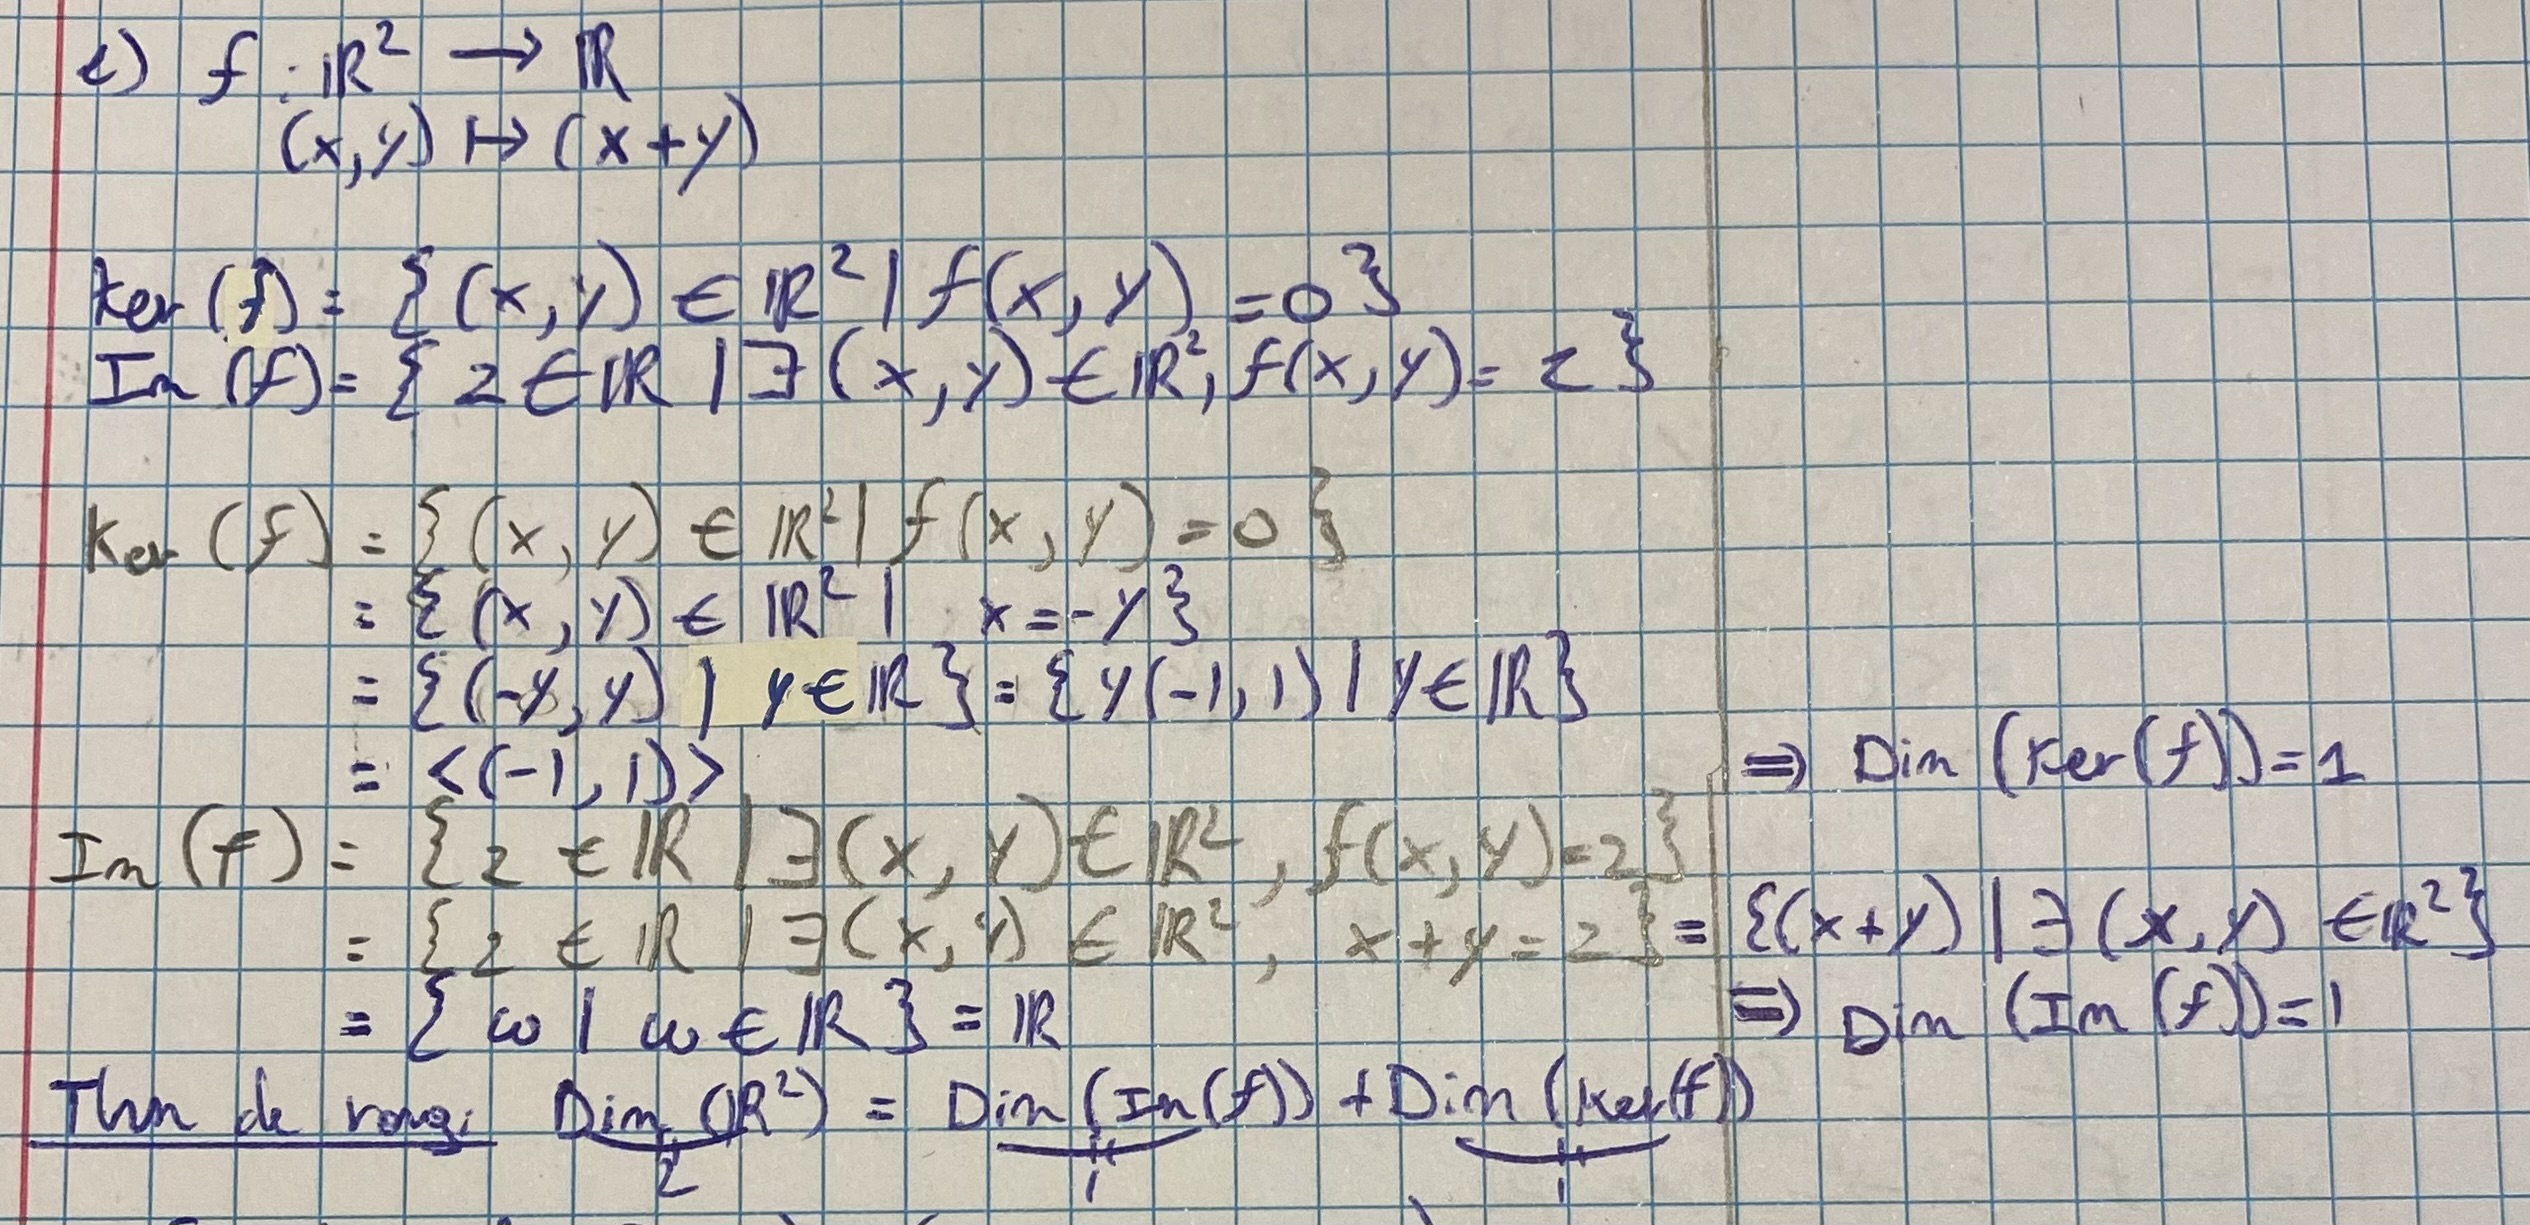 c) f : ℝ² → ℝ
(x,y) ↦ (x+y)
Ker (f) = {(x,y) ∈ ℝ² | f(x,y) = 0}
Im (f) = { z ∈ ℝ | ∃ (x,y) ∈ ℝ², f(x,y) = z }
Ker (f) = {(x,y) ∈ ℝ² | f(x,y) = 0 }
= {(x,y) ∈ ℝ² | x = -y}
= {(-y,y) | y ∈ ℝ} = {y(-1,1) | y ∈ ℝ}
= <(-1,1)> ⇒ Dim (Ker(f)) = 1
Im (f) = { z ∈ ℝ | ∃(x,y) ∈ ℝ², f(x,y) = z}
= { z ∈ ℝ | ∃(x,y) ∈ ℝ², x+y = z} = {(x+y) | ∃ (x,y) ∈ ℝ²}
= { ω | ω ∈ ℝ } = ℝ ⇒ Dim (Im (f)) = 1
Thm de rang: Dim (ℝ²) = Dim (Im(f)) + Dim (Ker(f))
2 1 1